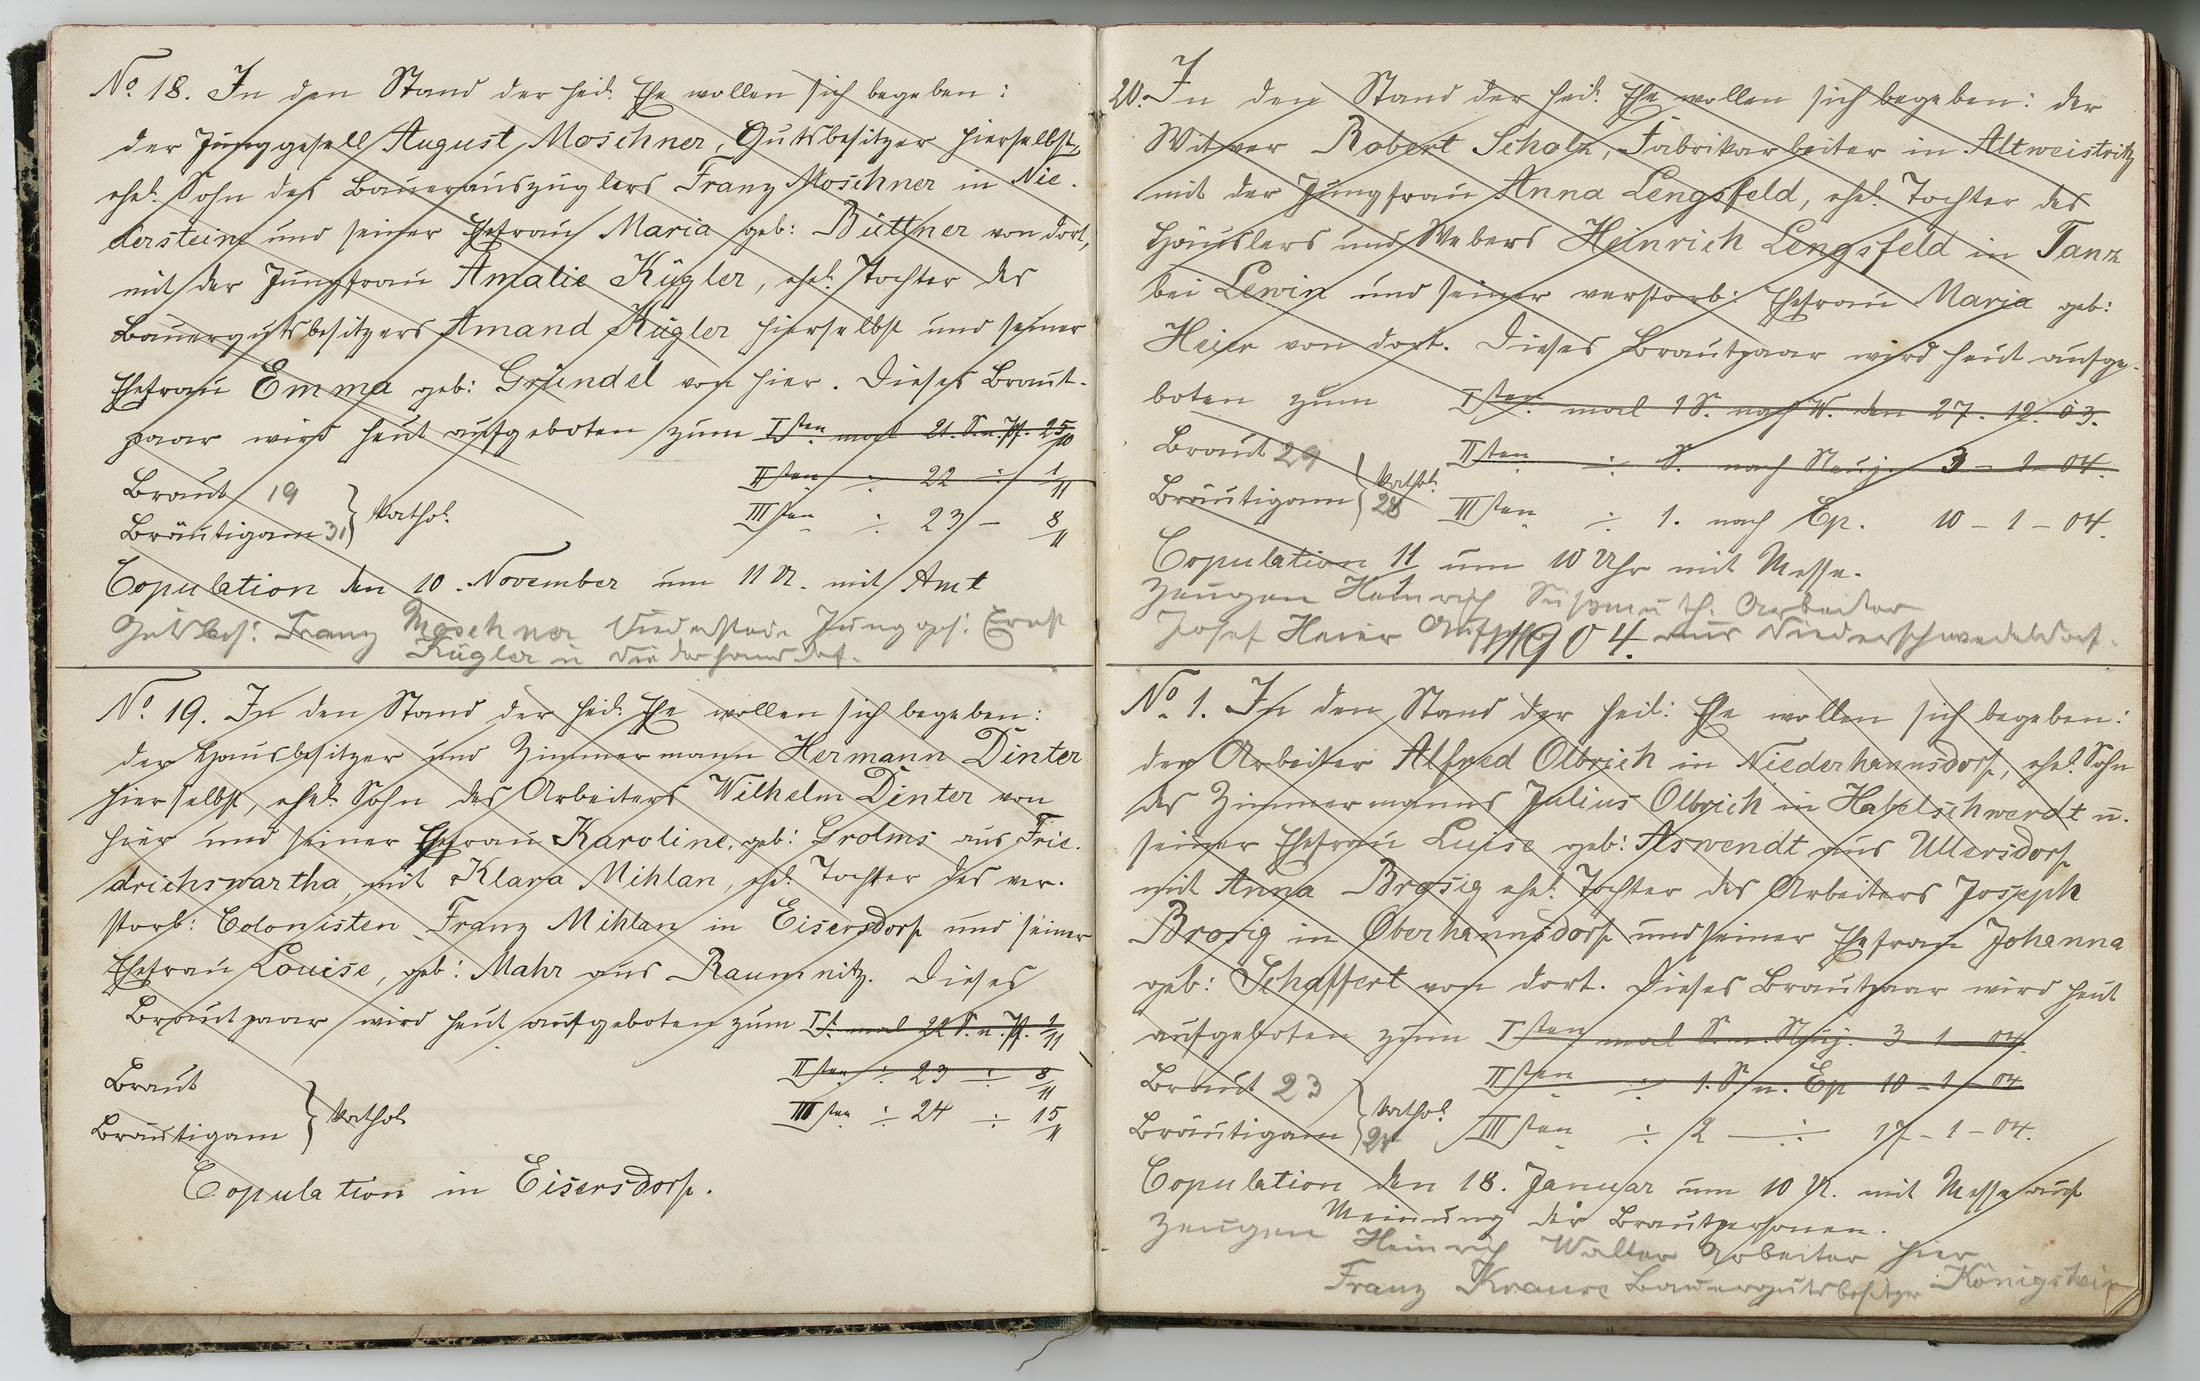 No. 18. In den Stand der heil. Ehe wollen sich begeben:
der Junggesell August Moschner, Gutsbesitzer hierselbst,
ehel. Sohn des Bauerauszüglers Franz Moschner in Nie-
dersteine und seiner Ehefrau Maria geb: Büttner von dort,
mit der Jungfrau Amalie Kügler, ehel. Tochter des
Bauergutsbesitzers Amand Kügler hierselbst und seiner
Ehefrau Emma geb: Gründel von hier. Dieses Braut-
paar wird heut aufgeboten zum Isten mal 21. S. n. Pf. 25/10
IIten ÷ 22 ÷ 1/11
Braut 19
IIIten ÷ 23 – 8/11
Bräutigam 31 } kathol.
Copulation den 10. November um 11 U. mit Amt
Gutsbes: Franz Moschner Jungges: Ernst
Kügler
No. 19. In den Stand der heil. Ehe wollen sich begeben:
der Hausbesitzer und Zimmermann Hermann Dinter
hierselbst, ehel. Sohn des Arbeiters Wilhelm Dinter von
hier und seiner Ehefrau Karoline, geb: Grolms aus Frie-
drichswartha, mit Klara Mihlan, ehel. Tochter des ver-
storb: Colonisten Franz Mihlan in Eisersdorf und seiner
Ehefrau Louise, geb: Mahr aus Raumnitz. Dieses
Brautpaar wird heut aufgeboten zum I. mal 22 S. n. Pf. 1/11
IIten ÷ 23 ÷ 8/11
Braut
IIIten ÷ 24 ÷ 15/11
Bräutigam } kathol.
Copulation in Eisersdorf.
20. In den Stand der heil. Ehe wollen sich begeben: der
Witwer Robert Scholz, Fabrikarbeiter in Altweistritz
mit der Jungfrau Anna Lengsfeld, ehel. Tochter des
Häuslers und Webers Heinrich Lengsfeld in Tanz
bei Lewin und seiner verstorb: Ehefrau Maria geb:
Heier von dort. Dieses Brautpaar wird heut aufge-
boten zum Isten mal 1 S. nach W. den 27. 12. 03.
Braut 29
IIten ÷ S. nach Neuj. 3 – 1 – 04.
Bräutigam 28 } kathol.
IIIten ÷ 1. nach Ep. 10 – 1 – 04.
Copulation 11/1 um 10 Uhr mit Messe.
Zeugen Heinrich Süßmuth. Arbeiter
Josef Heier aus Niederschwedeldorf.
1904.
No. 1. In den Stand der heil: Ehe wollen sich begeben:
der Arbeiter Alfred Olbrich in Niederhannsdorf, ehel. Sohn
des Zimmermanns Julius Olbrich in Habelschwerdt u.
seiner Ehefrau Luise geb: Aswendt aus Ullersdorf
mit Anna Brosig ehel. Tochter des Arbeiters Joseph
Brosig in Oberhannsdorf und seiner Ehefrau Johanna
geb: Schaffert von dort. Dieses Brautpaar wird heut
aufgeboten zum Isten mal S. n. Neuj. 3 – 1 – 04.
Braut 23
IIten ÷ 1. S. n. Ep 10 – 1 – 04
Bräutigam } kathol.
IIIten ÷ 2 — ÷ 17 – 1 – 04.
Copulation den 18. Januar um 10 U. mit Messe auf
Meinung der Brautpersonen.
Zeugen Heinrich Walter Arbeiter hier
Franz Krause Bauergutsbesitzer Königshain